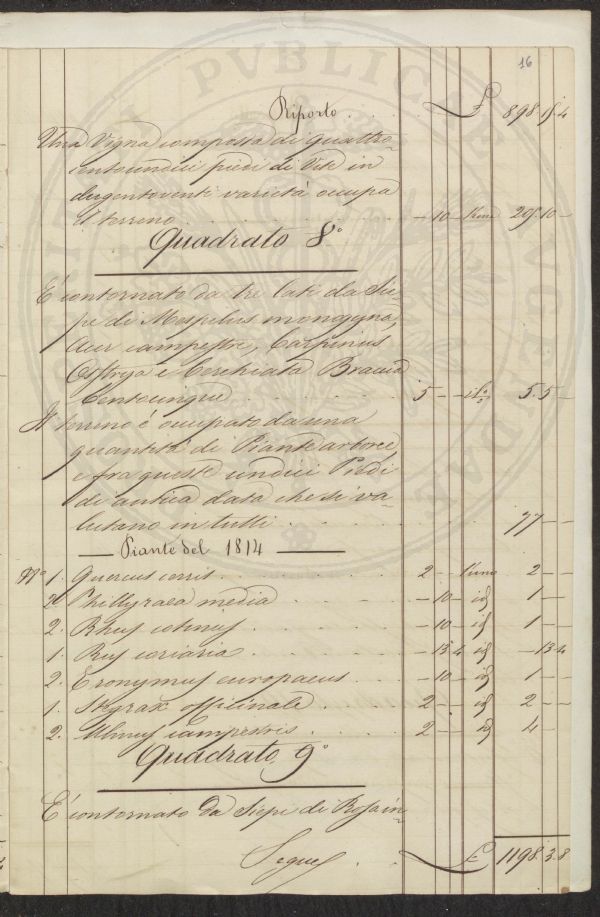 16
Riporto . . £ 898.15.4
Una Vigna composta di quattro-
centoundici piedi di Vite in
dugentoventi varietà occupa
il terreno . . . . . . - 10 - l'uno 205.10 -
Quadrato 8°
E' contornato da tre lati da Sie-
pe di Mespilus monogyna,
Acer campestre, Carpinus
Ostrya e Cerchiata Braccia
Centocinque . . . . . 5 - - il % 5.5 -
Il terreno è occupato da una
quantità di Piante arboree,
e fra queste undici Piedi
di antica data che si va-
lutano in tutti . . . . . 77 - -
Piante del 1814
N° 1. Quercus cerris . . . . 2 - - l'uno 2 - -
2. Phillyraea media . . . . - 10 - id 1 - -
2. Rhus cotinus . . . . - 10 - id 1 - -
1. Rus coriaria . . . . - 13.4 id - 13.4
2. Evonymus europaeus . . . - 10 - id 1 - -
1. Styrax officinale . . . 2 - - id 2 - -
2. Ulmus campestris . . . 2 - - id 4 - -
Quadrato 9°
E' contornato da Siepi di Rosa in-
Segue . £ 1198.3.8